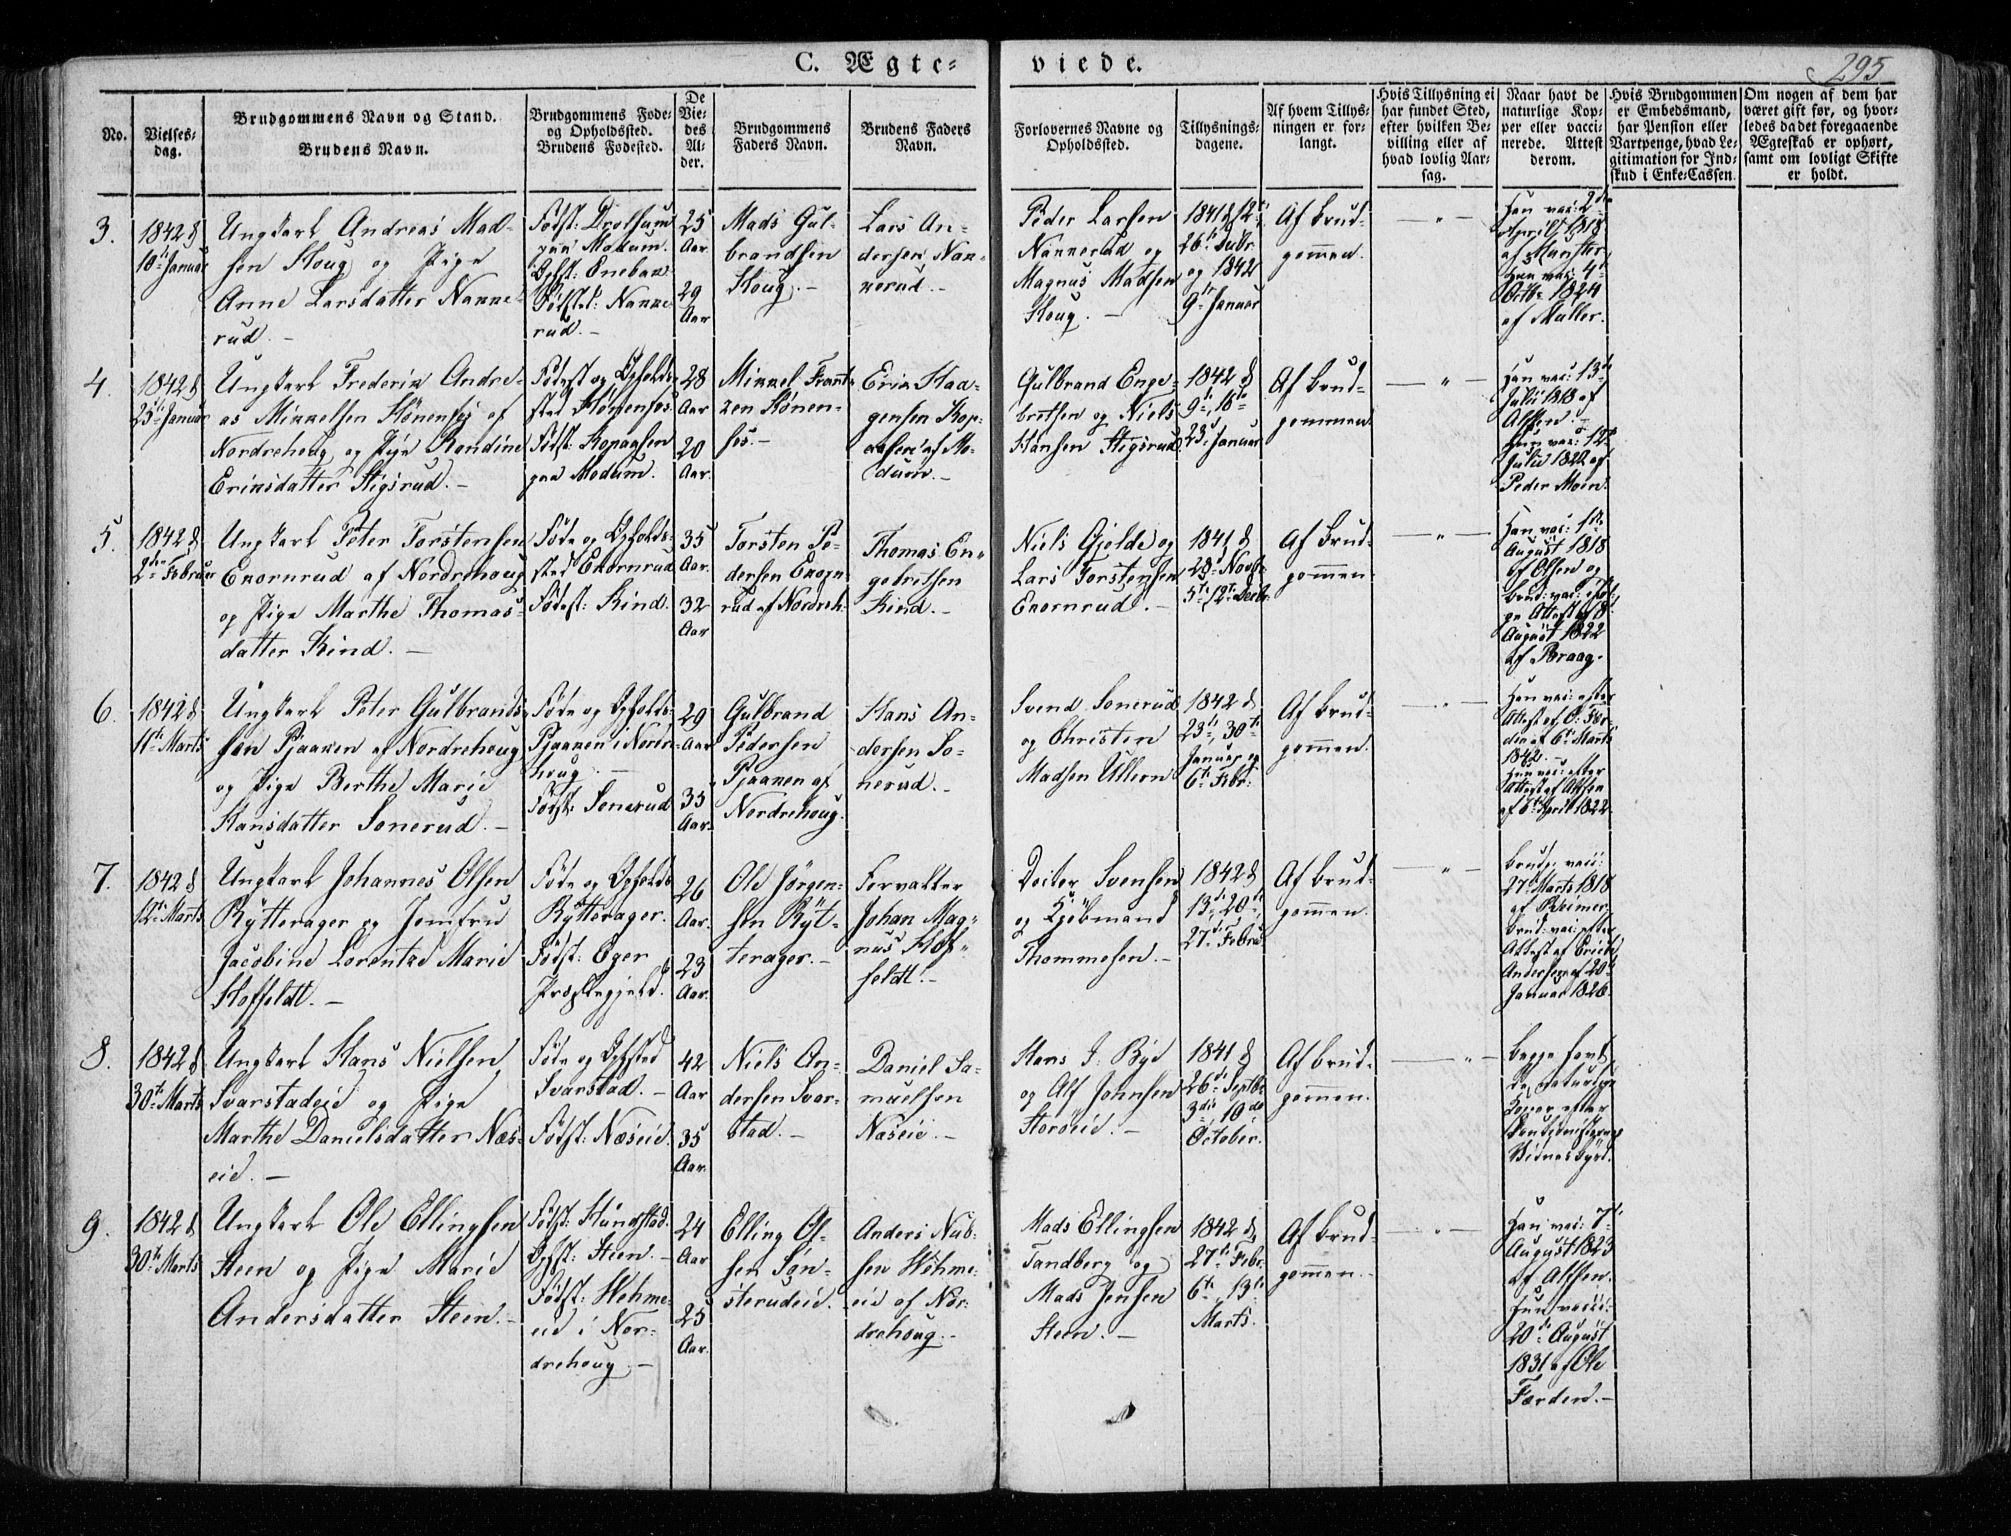 C. Ægte-
viede.
295
No.
Vielses-
dag.
Brudgommens Navn og Stand.
Brudens Navn.
Brudgommens Føde-
og Opholdssted.
Brudens Fødested.
De
Vie-
des
Al-
der.
Brudgommens
Faders Navn.
Brudens Faders
Navn.
Forlovernes Navne og
Opholdssted.
Tillysnings-
dagene.
Af hvem Tillys-
ningen er for-
langt.
Hvis Tillysning ei
har fundet Sted,
efter hvilken Be-
villing eller af
hvad lovlig Aar-
sag.
Naar havt de
naturlige Kop-
per eller vacci-
nerede. Attest
derom.
Hvis Brudgommen
er Embedsmand,
har Pension eller
Vartpenge, hvad Le-
gitimation for Ind-
skud i Enke-Cassen.
Om nogen af dem har
været gift før, og hvor-
ledes da det foregaaende
Ægteskab er ophørt,
samt om lovligt Skifte
er holdt.
3.
1842 d
10de Januar
Ungkarl Andreas Mad-
sen Houg og Pige
Anne Larsdatter Nanne-
rud.
Fødst: Drolsum
paa Modum.
Opst: Enebak
Fødsted: Nanne-
rud.
25
Aar
29
Aar
Mads Gul-
brandsen
Houg.
Lars An-
dersen Nan-
nerud.
Peder Larsen
Nannerud og
Magnus Madsen
Houg.
1841 d
26de
og 1842
9de Januar
Af Brud-
gommen.
Han vac: 2den
April 1818
af
Hun vac: 4
Octbr 1824
af Møller.
4.
1842 d
25de Januar
Ungkarl Frederik Andre-
as Mikkelsen Hønenfos af
Nordrehoug og Pige Randine
Eriksdatter Stigsrud.
Fødest og Opholds-
sted Hønenfos
Fødst: Kopaasen
paa Modum.
28
Aar
20
Aar.
Mikkel Frant-
zen Hønen-
fos.
Erik Haa-
gensen Kop-
aasen af Mo-
dum.
Gulbrand Enge-
bretsen og Niels
Hansen Stigsrud
1842 d
9de, 16de
23de Januar
Af Brud-
gommen
Han vac: 13de
Julii 1818 af
Altsen.
Hun vac: 12te
Julii 1822 af
Peder Moen.
5.
1842 d
2den Februar
Ungkarl Peter Torstensen
Ekornrud af Nordrehoug
og Pige Marthe Thomas-
datter Kind.
Føde og Opholds-
sted Ekornrud
Fødest: Kind.
35
Aar.
32
Aar
Torsten Pe-
dersen Ekorn-
rud af Nordreh:
Thomas En-
gebretsen
Kind.
Niels Gjelde og
Lars Torstensen
Ekornrud.
1841 d
28de Novbr
5te, 12te Decbr.
Af Brud-
gommen.
Han vac: 1ste
August 1818
af Olsen og
Brud: vac:
Attest af 8
August 1822
af Braag.
6.
1842 d
11te Marts
Ungkarl Peter Gulbrand-
sen Pjaaken af Nordrehoug
og Pige Berthe Marie
Hansdatter Sonerud.
Føde og Opholds-
Pjaaken i Nordre-
houg.
Fødst: Sonerud
29
Aar
35
Aar.
Gulbrand
Pedersen
Pjaaken af
Nordrehoug.
Hans An-
dersen So-
nerud.
Svend Sonerud
og Christen
Madsen Ullern
1842 d
23de, 30te
Januar og
6te Febr:
Af Brud-
gommen.
Han vac: efter
Attest af O: Fær-
den af 6te Marts
1842.
Hun vac: efter
Attest af Altsen
af 6te April 1822.
7.
1842 d
12te Marts
Ungkarl Johannes Olsen
Rytterager og Jomfru
Jacobine Lorentze Marie
Hoffeldt.
Føde og Opholds
Rytterager.
Fødst: Eger
Præstegjeld.
26
Aar.
23
Aar.
Ole Jørgen-
sen Ryt-
terager.
Forvalter
Johan Mag-
nus Hof-
feldt.
Svensen
og Kjøbmand
Thommesen.
1842 d
13de, 20de
27de Februar
Af Brud-
gommen.
Brudg: vac:
27de Marts 1818
af Reimer.
Brud: vac: efter
Attest af Erick
Andersen af 20de
Januar 1826.
8.
1842 d
30te Marts
Ungkarl Hans Nielsen
Svarstadeie og Pige
Marthe Danielsdatter Næs-
eie.
Føde og Opsted
Svarstad.
Fødst: Næseie.
42
Aar
35
Aar.
Niels An-
dersen Svar-
stad.
Daniel Sa-
muelsen
Næseie.
Hans J. Bye
og Alf Johnsen
Storøeie.
1841 d
26de Septbr
3die 10de
October.
Af Brud-
gommen.
Begge havt
de naturlige
Kopper efter
Vidnesbyrd.
9.
1842 d
30te Marts
Ungkarl Ole Ellingsen
Steen og Pige Marie
Andersdatter Steen.
Fødst: Hundstad.
Opst: Steen.
Fødst: Hehme-
eie i Nor-
drehoug.
24
Aar
25
Aar.
Elling Ol-
sen Søn-
sterudeie.
Anders Nub-
sen Hehme-
eie af Nor-
drehoug.
Mads Ellingsen
Tandberg og
Mads Jensen
Steen.
1842 d
27de Febr.
6te, 13de
Marts.
Af Brud-
gommen.
Han vac: 7de
August 1823
af Altsen.
Hun vacc:
20de August
1831 af Ole
Færden.